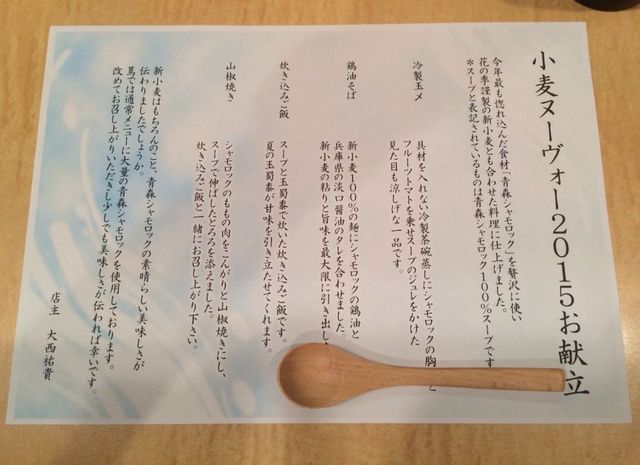 小麦ヌーヴォー2015お献立
今年最も惚れ込んだ食材「青森シャモロック」を贅沢に使い
花の季謹製の新小麦とも合わせた料理に仕上げました。
＊スープと表記されているものは青森シャモロック100％スープです
冷製玉〆
具材を入れない冷製茶碗蒸しにシャモロックの胸
と
フルーツトマトを乗せスープのジュレをかけた
見た目も涼しげな一品です。
鶏油そば
新小麦100％の麺にシャモロックの鶏油と
兵庫県の淡口醤油のタレを合わせました。
新小麦の粘りと旨味を最大限に引き出し、
炊き込みご飯
スープと玉蜀黍で炊いた炊き込みご飯です。
夏の玉蜀黍が甘味を引き立たせてくれます。
山椒焼き
シャモロックのももの肉をこんがりと山椒焼きにし、
スープで伸ばしたとろろを添えました。
炊き込みご飯と一緒にお召し上がり下さい。
新小麦はもちろんのこと、青森シャモロックの素晴らしい美味しさが
伝わりましたでしょうか。
蔦では通常メニューに大量の青森シャモロックを使用しております。
改めてお召し上がりいただき少しでも美味しさが伝われば幸いです。
店主 大西祐貴